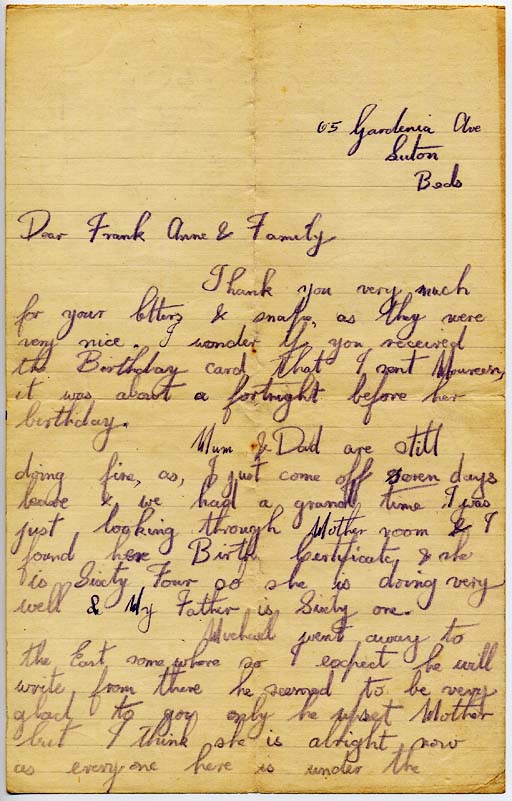 65 Gardenia Ave
Luton
Beds
Dear Frank Anne & Family
Thank you very much
for your letters & snaps, as they were
very nice. I wonder if you received
the Birthday card that I sent Maureen,
it was about a fortnight before her
birthday.
Mum & Dad are still
doing fine, as, I just come off seven days
leave & we had a grand time. I was
just looking through Mother room & I
found her Birth Certificate, & she
is Sixty Four so she is doing very
well & My Father is Sixty one.
Micheall went away to
the East some where so I expect he will
write from there he seemed to be very
glad to goy only he upset Mother
but I think she is alright now
as everyone here is under the